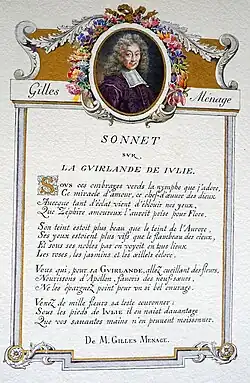 Gilles Menage
SONNET
SUR
LA GVIRLANDE DE IVLIE.
Sous ces ombrages verds la nymphe que j'adore,
Ce miracle d'amour, ce chef d'œuvre des dieux
Avecque tant d'éclat vient d'éblouir nos yeux,
Que Zéphire amoureux l'auroit prise pour Flore.
Son teint estoit plus beau que le teint de l'Aurore,
Ses yeux estoient plus vifs que le flambeau des cieux,
Et sous ses nobles pas on voyoit en tous lieux
Les roses, les jasmins et les œillets éclore.
Vous qui, pour sa GVIRLANDE, allez cueillant des fleurs,
Nourrissons d'Apollon, favoris des neuf sœurs,
Ne les épargnez point pour un si bel ouvrage.
Venez de mille fleurs sa teste couronner;
Sous les pieds de IVLIE il en naist davantage
Que vos savantes mains n'en peuvent moissonner.
DE M. GILLES MENAGE.